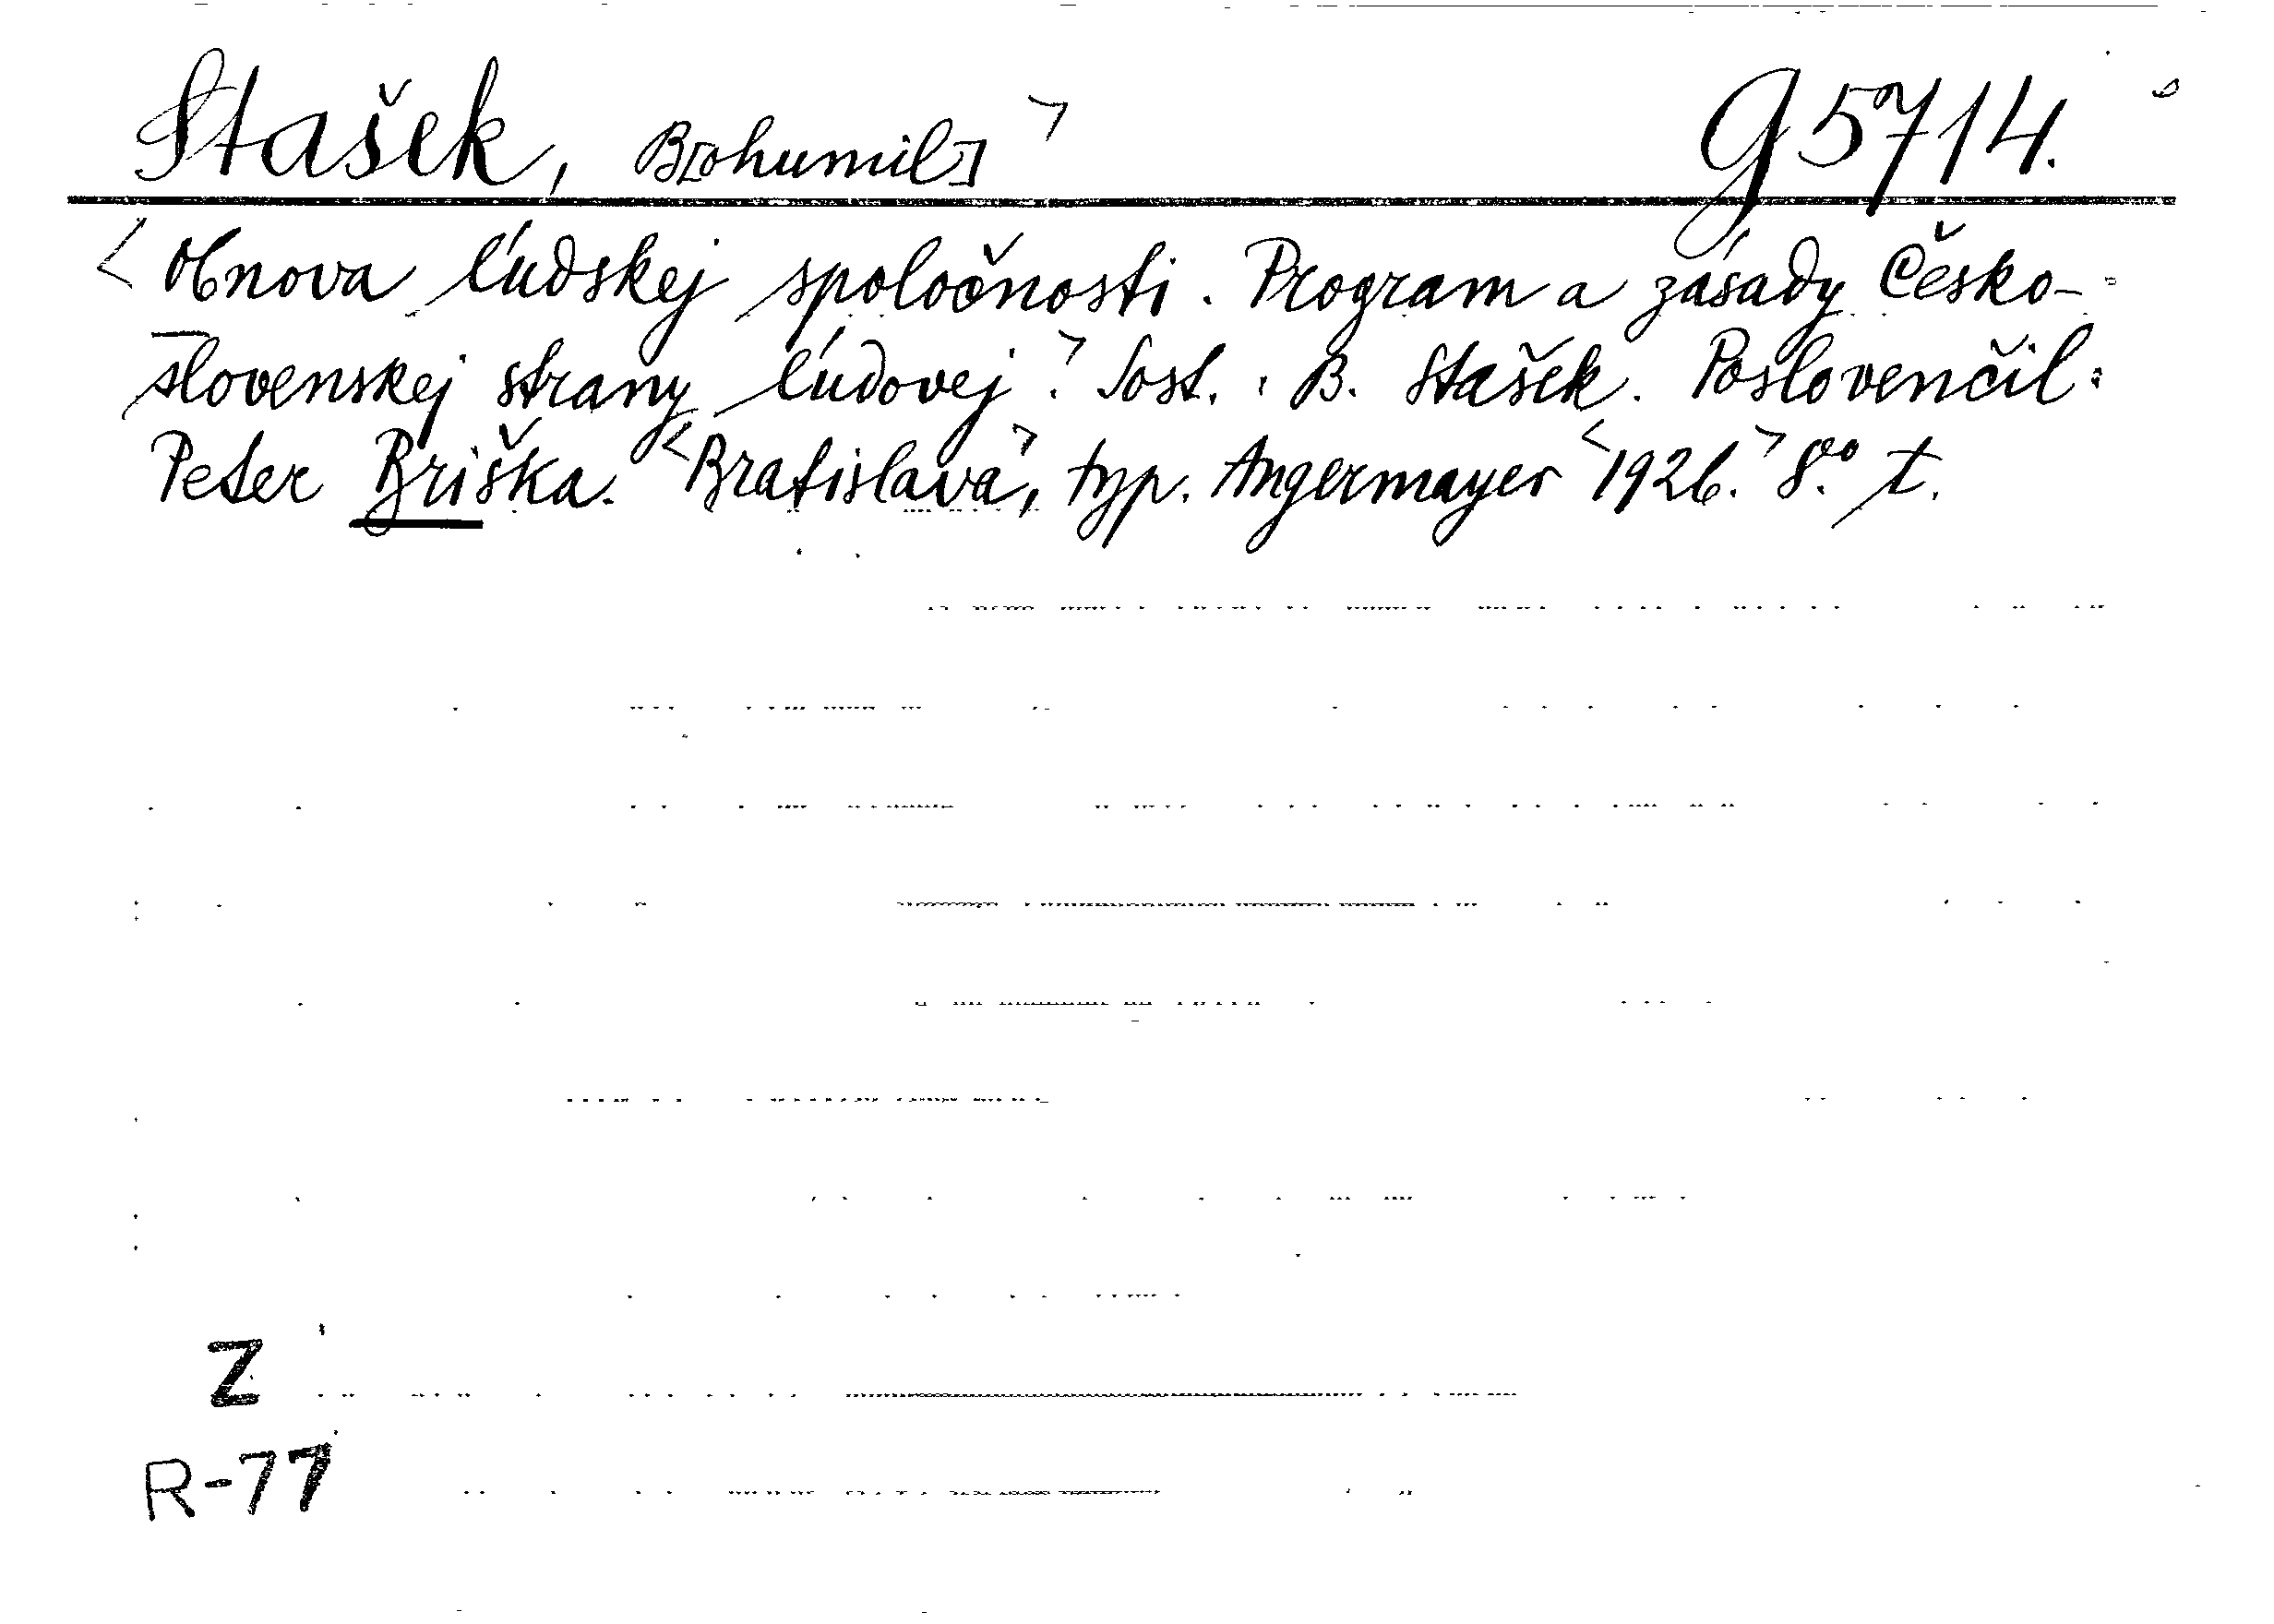 Stašek, B[ohumil]> G 5714.
<Obnova ľudskej spoločnosti. Program a zásady Česko-
slovenskej strany ľudovej.> Sost.: B. Stašek. Poslovenčil:
Peter Briška. <Bratislava>, typ. Angermayer <1926.> 8.° t.
Z
R-77